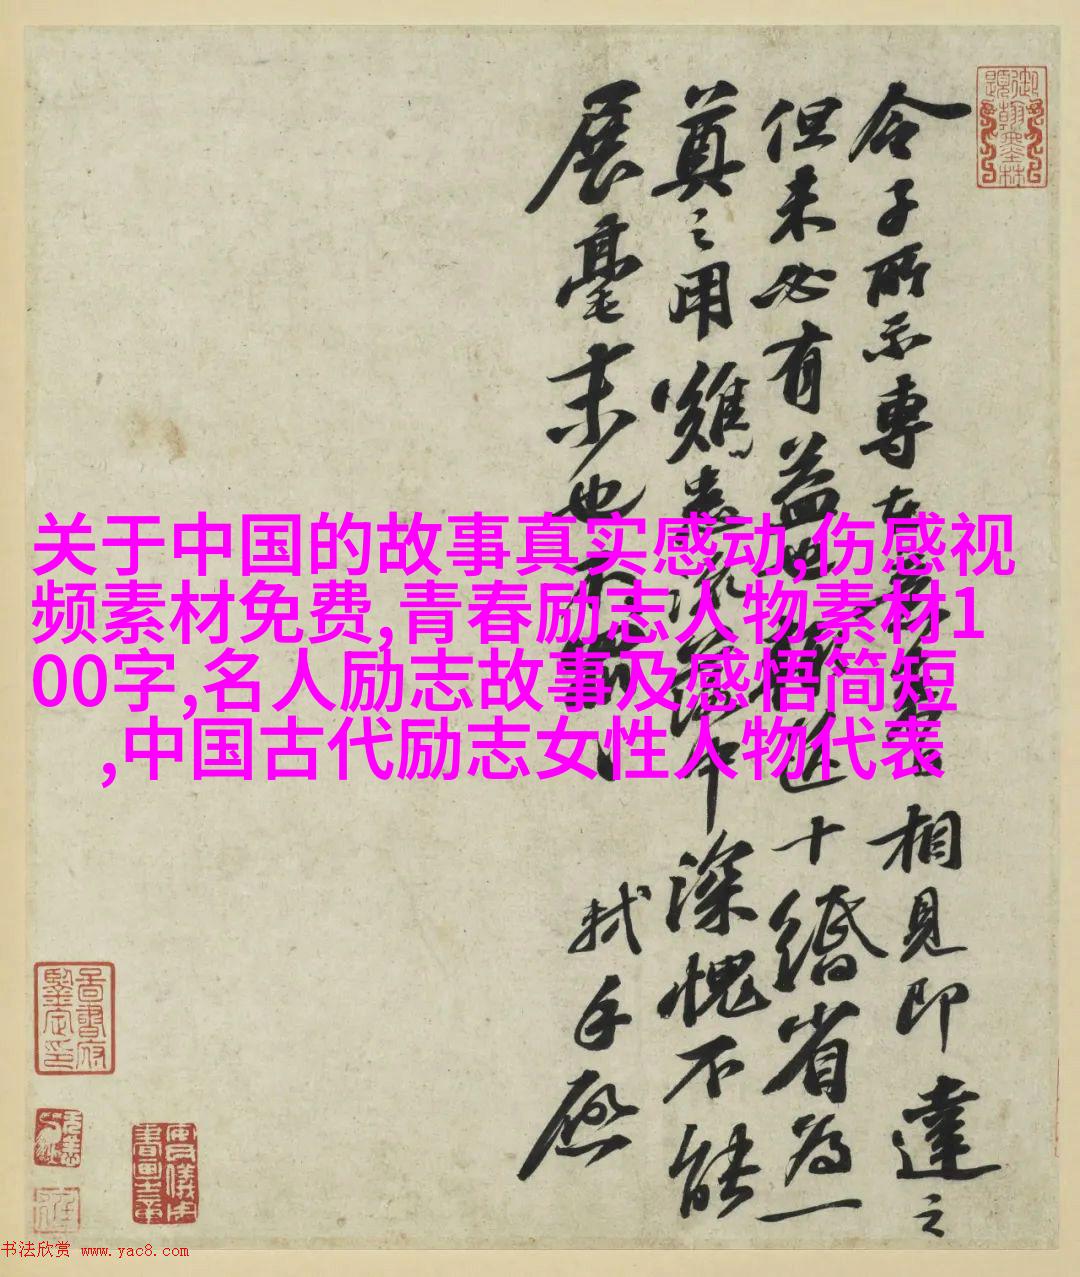 令子所示專在相見即達之
但未必有益也近十緡省為一
奠之用雖中深愧不能
展毫末也不
軾手啟
关于中国的故事真实感动,伤感视
频素材免费,青春励志人物素材1
00字,名人励志故事及感悟简短
,中国古代励志女性人物代表
书法欣赏 www.yac8.com